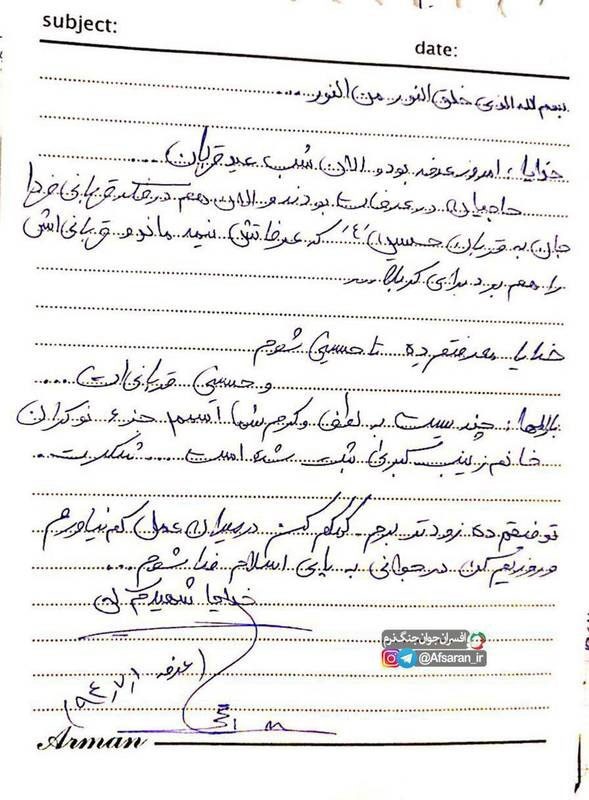 subject:
date:
بسم الله الذی خلق النور من النور ...
خدایا، امروز عرفه بود و الان شب عید قربان ....
حاجیان در عرفات بودند و الان هم در فکر قربانی فردا
جان به قربان حسین "ع" که عرفاتش نیمه ماند و قربانی اش
را هم برد برای کربلا ....
خدایا معرفتم ده تا حسینی شوم
و حسینی قربانی ات ....
بارالها، چندیست به لطف و کرم شما اسمم جزء نوکران
خانم زینب کبری ثبت شده است ... شکرت ...
توفیقم ده زودتر بروم. کمکم کن در میدان عمل کم نیاورم
و روزیم کن در جوانی به پای اسلام فنا شوم ...
خدایا شهیدم کن
عرفه ۹۴/۷/۱
افسران جوان جنگ نرم
@Afsaran_ir
Arman